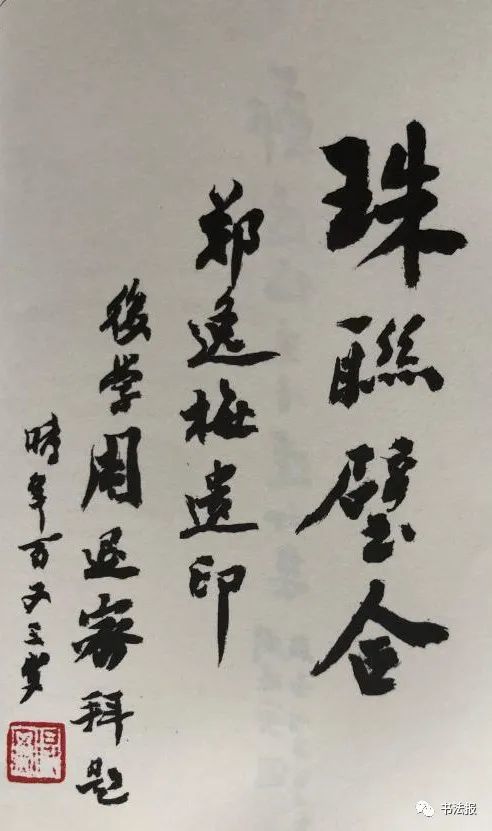 珠聯璧合
郑逸梅遗印
後学周退密拜题
時年百又三岁
书法报